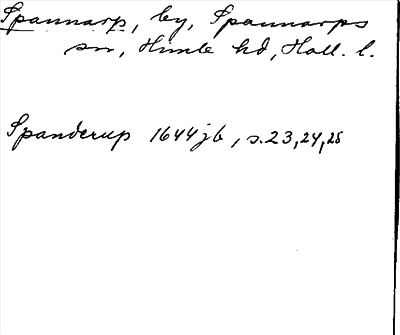 Spannarp, by, Spannarps
sn, Himle hd, Hall. l.
Spanderup 1644 jb, s. 23, 24, 28